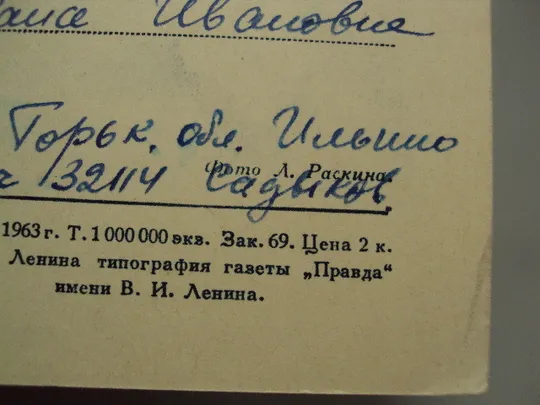 Ивановне
Горьк. обл. Ильино
Фото Л. Раскина.
ч 32114 Садыков
1963 г. Т. 1 000 000 экв. Зак. 69. Цена 2 к.
Ленина типография газеты „Правда“
имени В. И. Ленина.